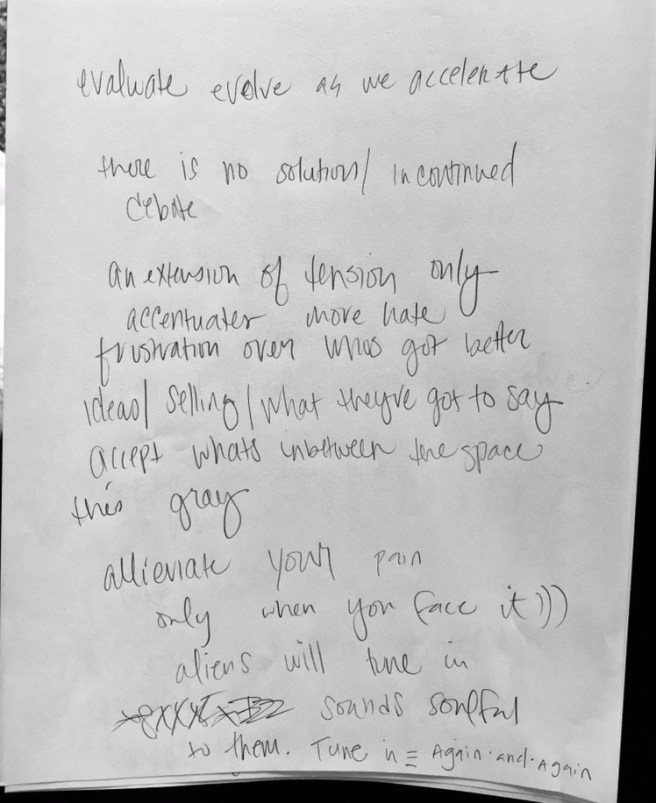 evaluate evolve as we accelerate
there is no solution/ in continued
debate
an extension of tension only
accentuates more hate
frustration over whos got better
ideas/ selling/ what theyve got to say
accept whats inbetween the space
this gray
allieviate your pain
only when you face it)))
aliens will tune in
sounds soulful
to them. Tune in = Again·and·Again